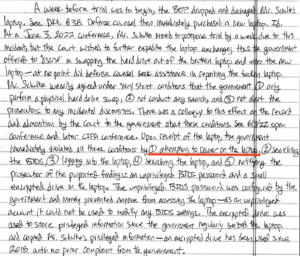 A week before trial was to begin the BOP dropped and damaged Mr. Schulte's
laptop. See Dkt. 838. Defense counsel then immediately purchased a new laptop. Id.
At a June 3, 2022 conference, Mr. Schulte moved to postpone trial by a week due to this
incident but the Court wished to further expedite the laptop exchange; thus the government
offered to "assist" in swapping the hard drive out of the broken laptop and into the new
laptop—at no point did defense counsel seek assistance in repairing the broken laptop.
Mr. Schulte wearily agreed under very strict conditions that the government ① only
perform a physical hard drive swap, ② not conduct any search, and ③ not alert the
prosecutors to any incidental discoveries. There was a colloquy to this effect on the record
and affirmations by the Court to the government about these conditions. See 6/3/22 open
conference and later CIPA conference. Upon receipt of the laptop, the government
immediately violated all three conditions by ① attempting to boot up the laptop, ② searching
the BIOS, ③ logging into the laptop, ④ searching the laptop, and ⑤ notifying the
prosecutor of the purported findings: an unprivileged BIOS password and a small
encrypted drive on the laptop. The unprivileged BIOS password was configured by the
government and merely prevented anyone from accessing the laptop—as an unprivileged
account it could not be used to modify any BIOS settings. The encrypted drive was
used to store privileged information since the government regularly seized the laptop
and copied Mr. Schulte's privileged information—an encrypted drive has been used since
2018 with no prior complaint from the government.